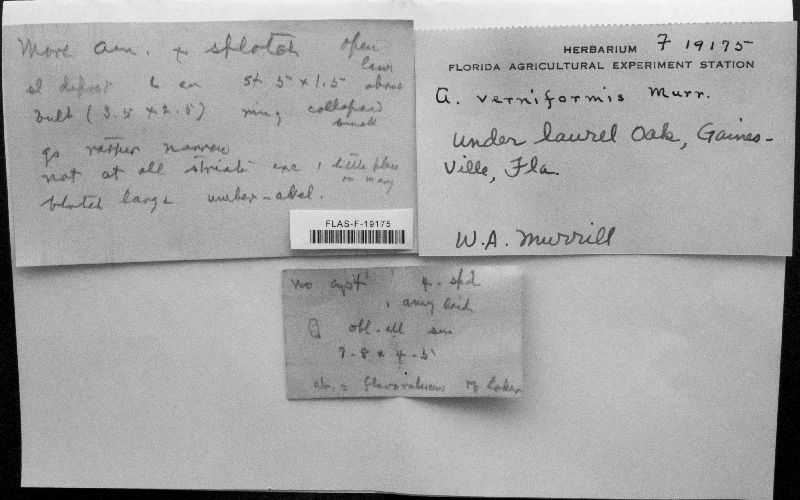 More Am. + splotch open
lawn
sl deposit 6 cm st 5 x 1.5 above
bulb (3.5 x 2.5) ring collapsed
small
gs rather narrow
not at all striate exc, little place
on marg
blotch large umber-
FLAS-F-19175
HERBARIUM F 19175
FLORIDA AGRICULTURAL EXPERIMENT STATION
A. verniformis Murr.
under laurel Oak, Gaines-
ville, Fla.
W.A. Murrill
no cyst 4-spd
amyloid
obl-ell sm
7-8 x 4-5
of Coker